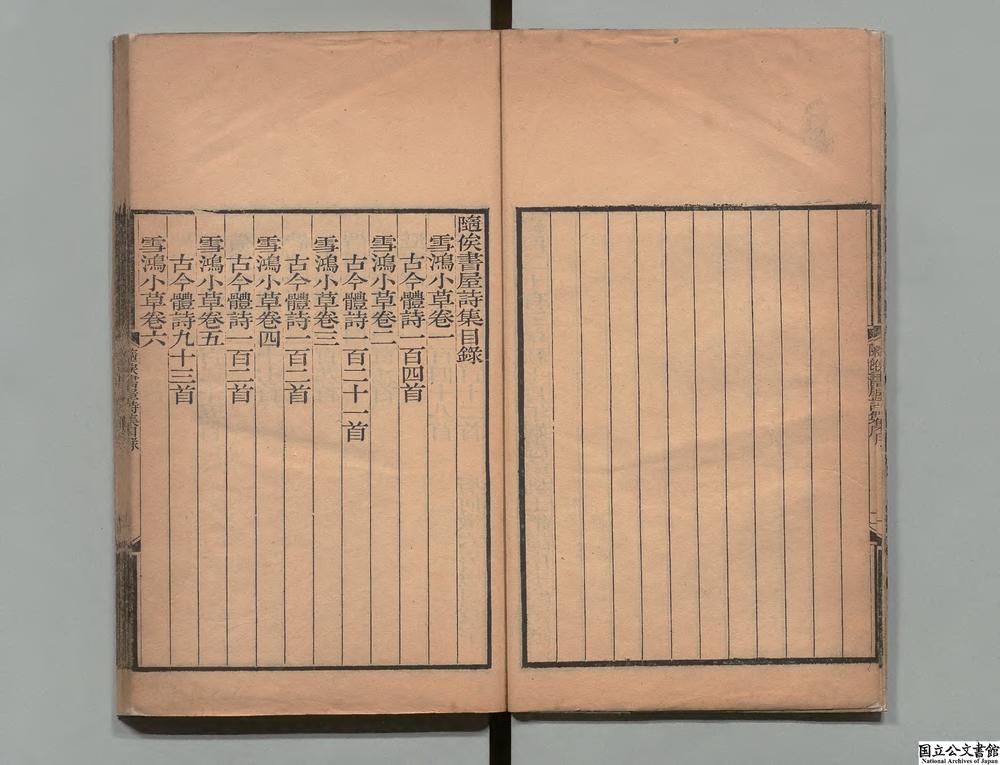 隨俟書屋詩集目錄
雪鴻小草卷一
古今體詩一百四首
雪鴻小草卷二
古今體詩一百二十一首
雪鴻小草卷三
古今體詩一百二首
雪鴻小草卷四
古今體詩一百二首
雪鴻小草卷五
古今體詩九十三首
雪鴻小草卷六
国立公文書館
National Archives of Japan